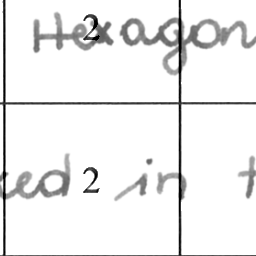 2 Hexagon
ed 2 in t